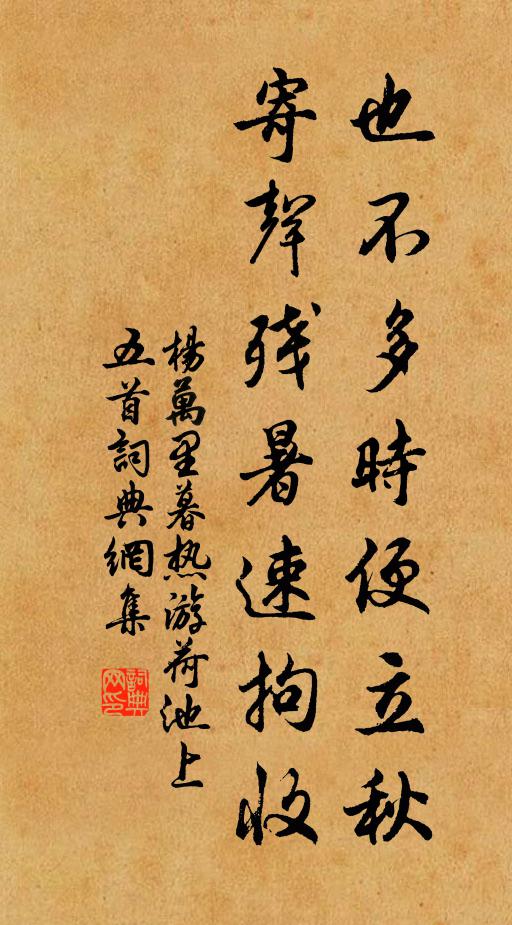 也不多時便立秋
寄聲残暑速拘收
楊萬里暮热游荷池上
五首詞典網集
詞典網印